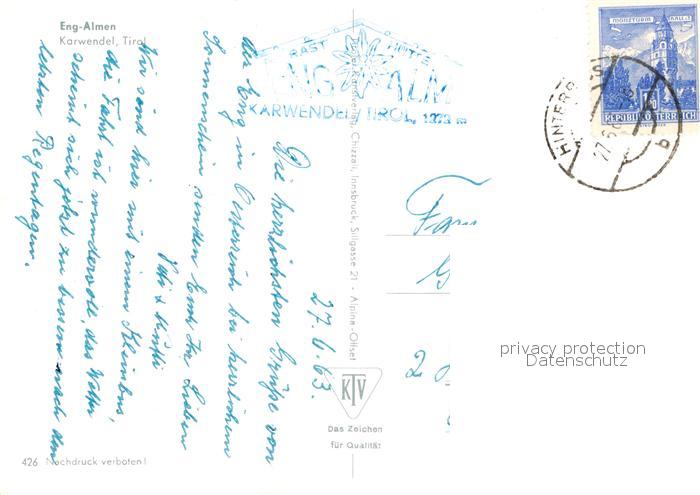 Eng-Almen
Karwendel, Tirol
RAST HÜTTE
ENG ALM
KARWENDEL, TIROL, 1273 m
MÜNZTURM HALL i. T.
REPUBLIK ÖSTERREICH
HINTERR
b
27.6.63.
Die herrlichsten Grüße von
der Eng in Österreich bei herrlichem
Sonnenschein senden Euch Ihr Lieben
Wir sind hier mit einem Kleinbus,
die Fahrt ist wundervoll, das Wetter
scheint sich jetzt zu bessern nach den
letzten Regentagen.
Chizzali, Innsbruck, Sillgasse 21 - Alpina-Offset
Fam
G
2
KTV
Das Zeichen
für Qualität
426 Nachdruck verboten!
privacy protection
Datenschutz